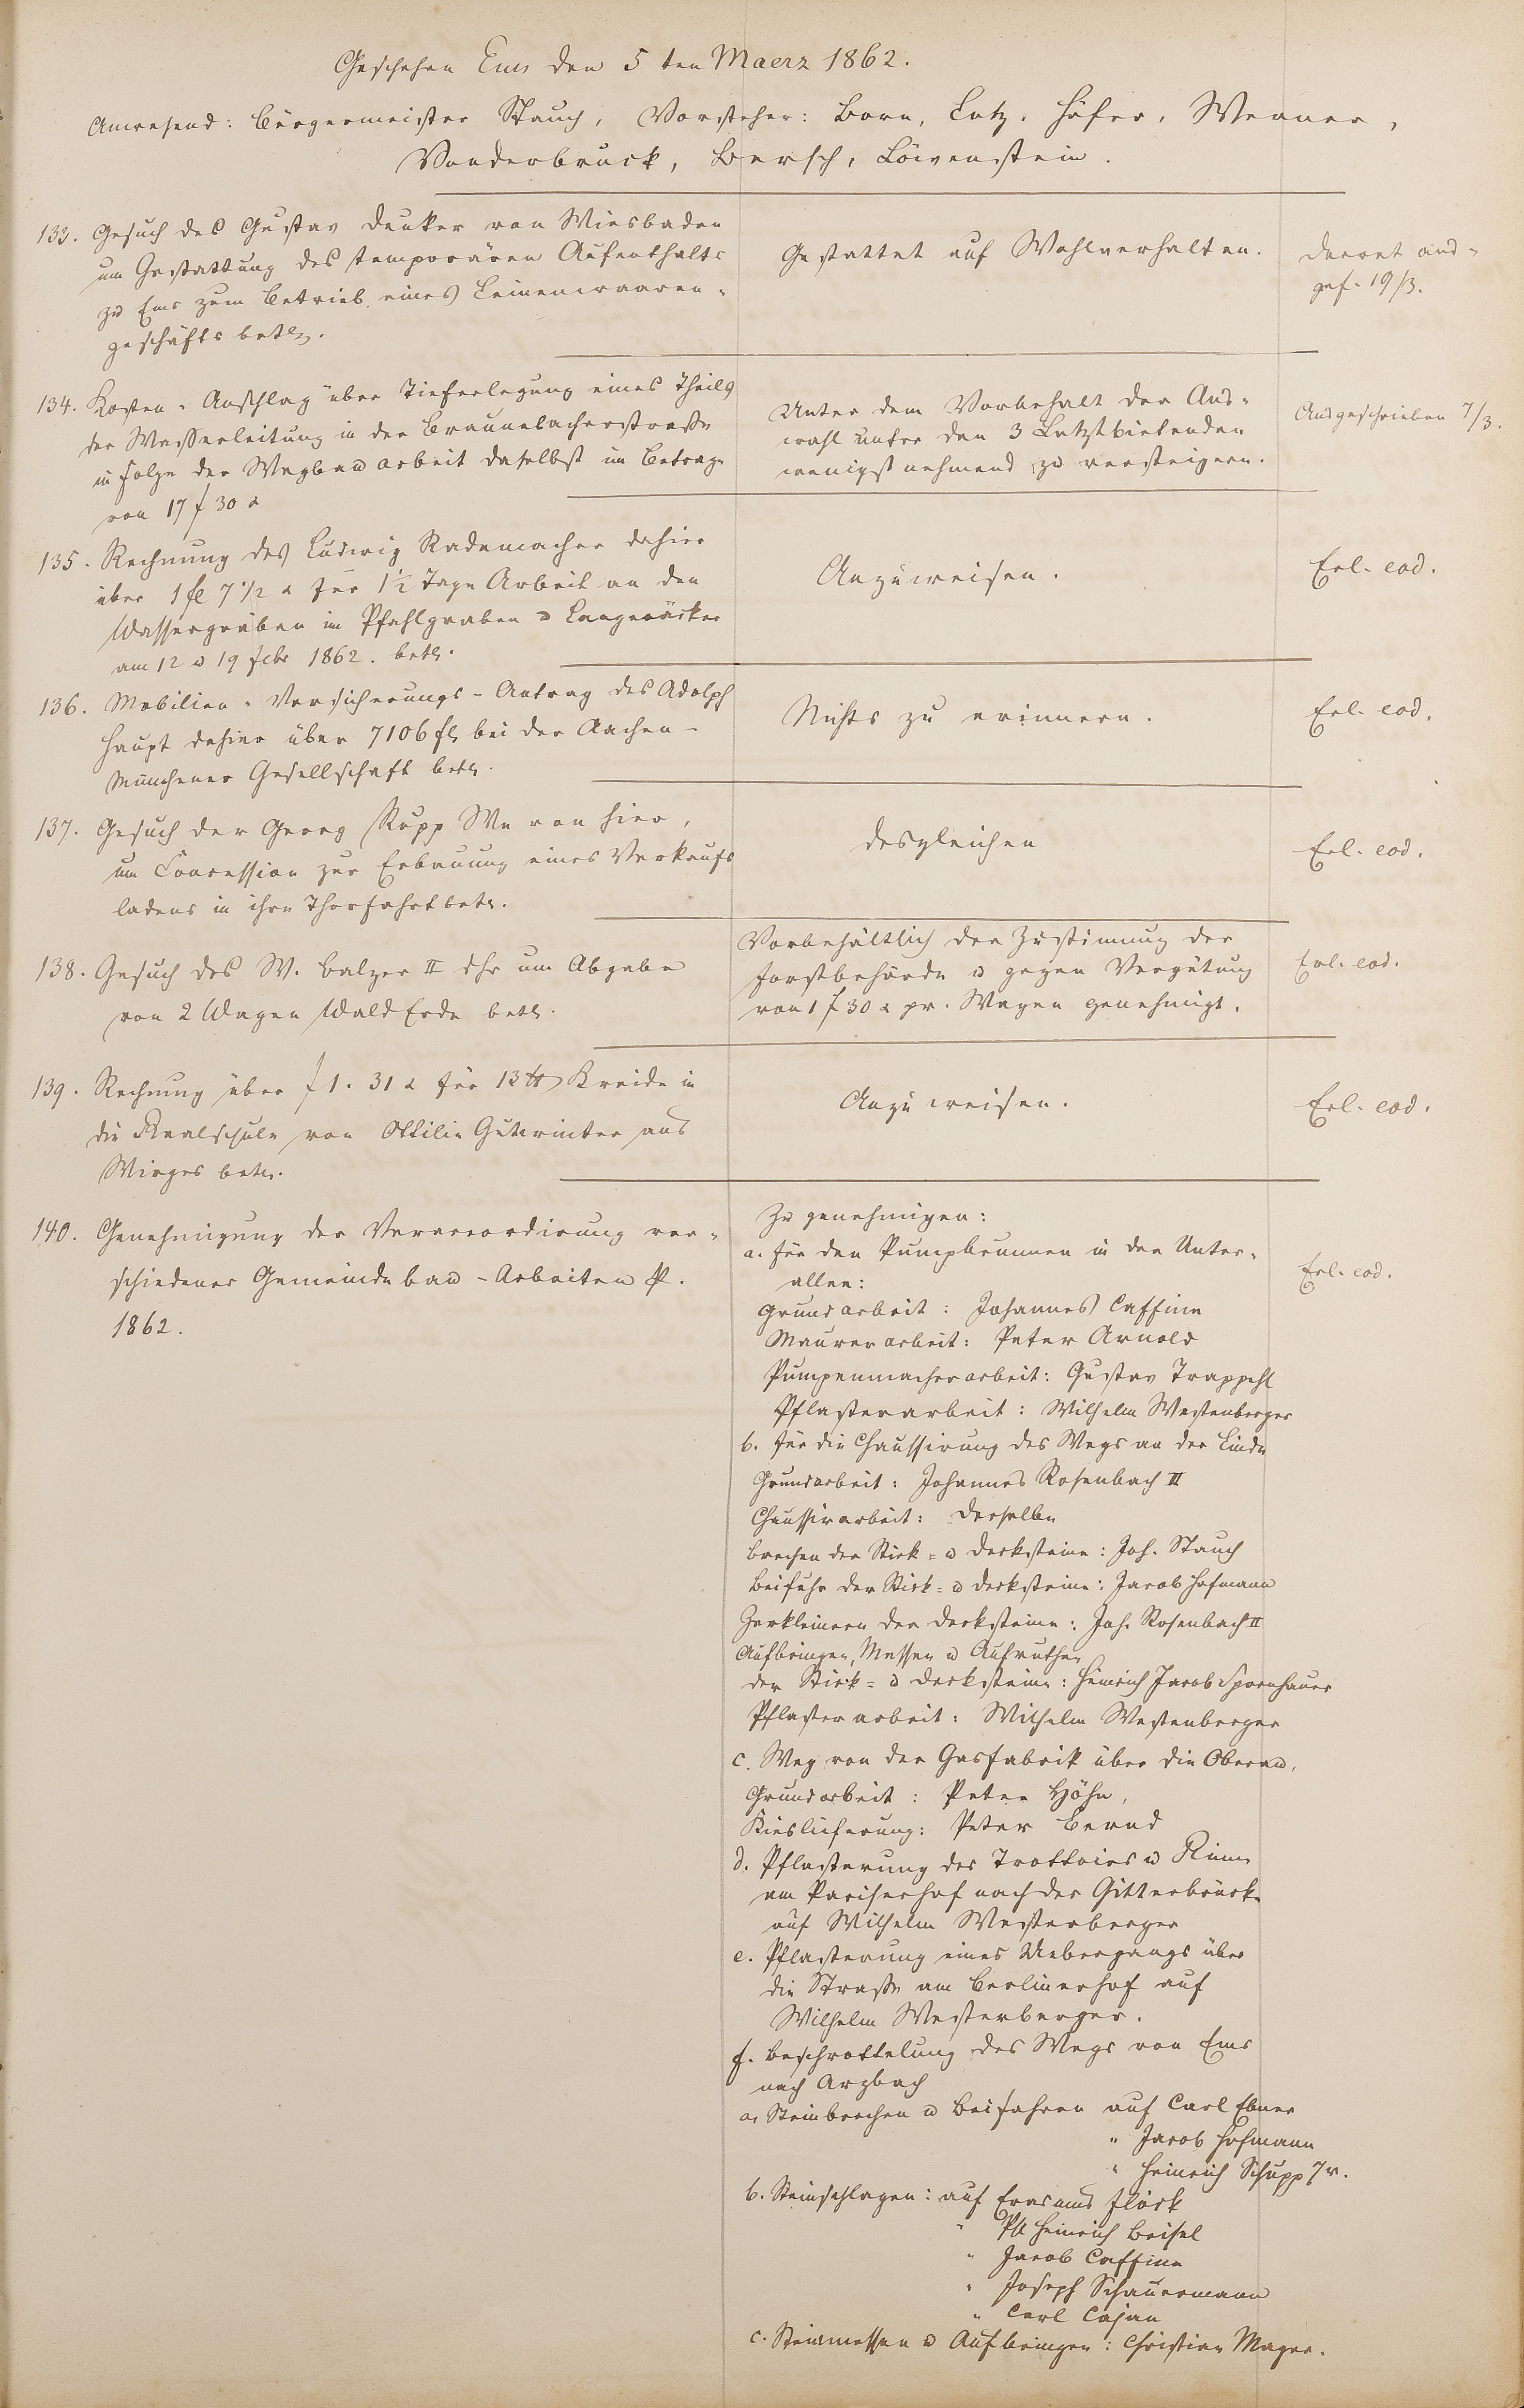 Geschehen Ems den 5ten Maerz 1862.
Anwesend: Bürgermeister Stauch, Vorsteher: Born, Lotz, Höfer, Werner,
Vonderbruck, Bersch, Löwenstein.
133. Gesuch des Gustav Deuker von Wiesbaden
um Gestattung des temporären Aufenthalts
zu Ems zum Betrieb eines Leinenwaaren-
geschäfts betr.
Gestattet auf Wohlverhalten.
Decret aus-
gef. 19/3.
134. Kosten-Anschlag über Tieferlegung eines Theils
der Wasserleitung in der Braunebacherstraße
in Folge der Wegbauarbeit daselbst im Betrage
von 17 f 30 x
Unter dem Vorbehalt der Aus-
wahl unter den 3 Letztbietenden
wenigstnehmend zu versteigern.
Ausgeschrieben 7/3.
135. Rechnung des Ludwig Rademacher dahier
über 1 fl 7 1/2 x für 1 1/2 Tage Arbeit an den
Wassergräben im Pfahlgraben u Langenäcker
am 12 u 19 Febr 1862. betr.
Anzuweisen.
Erl. eod.
136. Mobilien-Versicherungs-Antrag des Adolph
Haupt dahier über 7106 fl bei der Aachen-
Münchener Gesellschaft betr.
Nichts zu erinnern.
Erl. eod.
137. Gesuch der Georg Rupp We von hier,
um Concession zur Erbauung eines Verkaufs
ladens in ihre Thorfahrt betr.
desgleichen
Erl. eod.
138. Gesuch des W. Balzer II dhr um Abgabe
von 2 Wagen Wald Erde betr.
Vorbehältlich der Zustimmung der
Forstbehörde u gegen Vergütung
von 1 f 30 x pr. Wagen genehmigt.
Erl. eod.
139. Rechnung über f 1. 31 x für 13 ℔ Kreide in
die Realschule von Ottilie Gutwinter aus
Wirges betr.
Anzuweisen.
Erl. eod.
140. Genehmigung der Veraccordirung ver-
schiedener Gemeindebau-Arbeiten p.
1862.
Zu genehmigen:
a. für den Pumpbrunnen in der Unter-
allee:
Grundarbeit: Johannes Caffine
Maurerarbeit: Peter Arnold
Pumpenmacherarbeit: Gustav Trappehl
Pflasterarbeit: Wilhelm Westenberger
b. für die Chaussirung des Wegs an der Linde
Grundarbeit: Johannes Rosenbach II
Chaussirarbeit: Derselbe
Brechen der Stick- u Decksteine: Joh. Stauch
Beifuhr der Stick- u Decksteine: Jacob Hofmann
Zerkleinern der Decksteine: Joh. Rosenbach II
Aufbringen, Messen u Aufruthen
der Stick- u Decksteine: Heinrich Jacob Spornhauer
Pflasterarbeit: Wilhelm Westenberger
c. Weg von der Gasfabrik über die Oberau,
Grundarbeit: Peter Höhn,
Kieslieferung: Peter Bernd
d. Pflasterung des Trottoirs u Rinne
am Pariserhof nach der Gitterbrücke
auf Wilhelm Westerberger
e. Pflasterung eines Uebergangs über
die Straße am Berlinerhof auf
Wilhelm Westerberger.
f. Beschrottelung des Wegs von Ems
nach Arzbach
a, Steinbrechen u Beifahren auf Carl Ebner
" Jacob Hofmann
" Heinrich Schupp 7r.
b. Steinschlagen: auf Erasmus Flöck
" Ph Heinrich Beisel
" Jacob Caffine
" Joseph Schauermann
" Carl Cajan
c. Steinmessen u Aufbringen: Christian Mager.
Erl. eod.